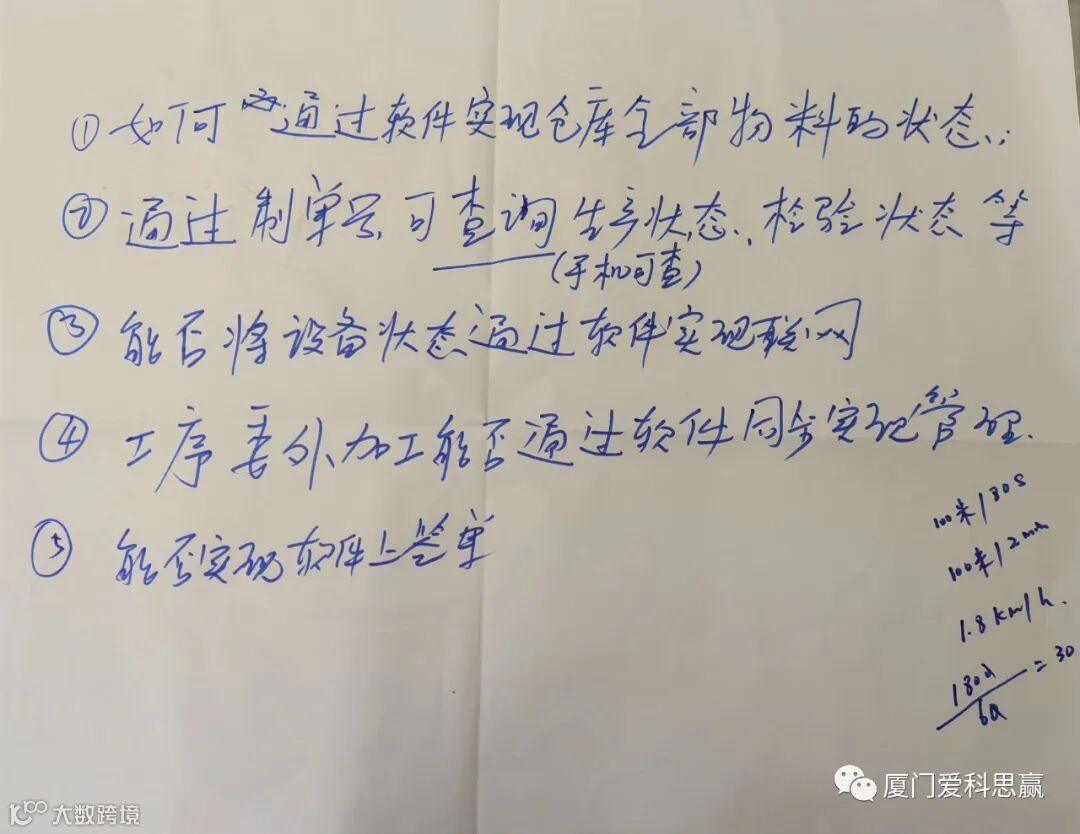 ① 如何通过软件实现仓库全部物料的状态.
② 通过制单号可查询生产状态、检验状态等
(手机可查)
③ 能否将设备状态通过软件实现联网
④ 工序委外加工能否通过软件同步实现管理.
⑤ 能否实现软件上签单
100米/30s
100米/2min
1.8km/h.
1800/60=30
厦门爱科思赢
大数跨境